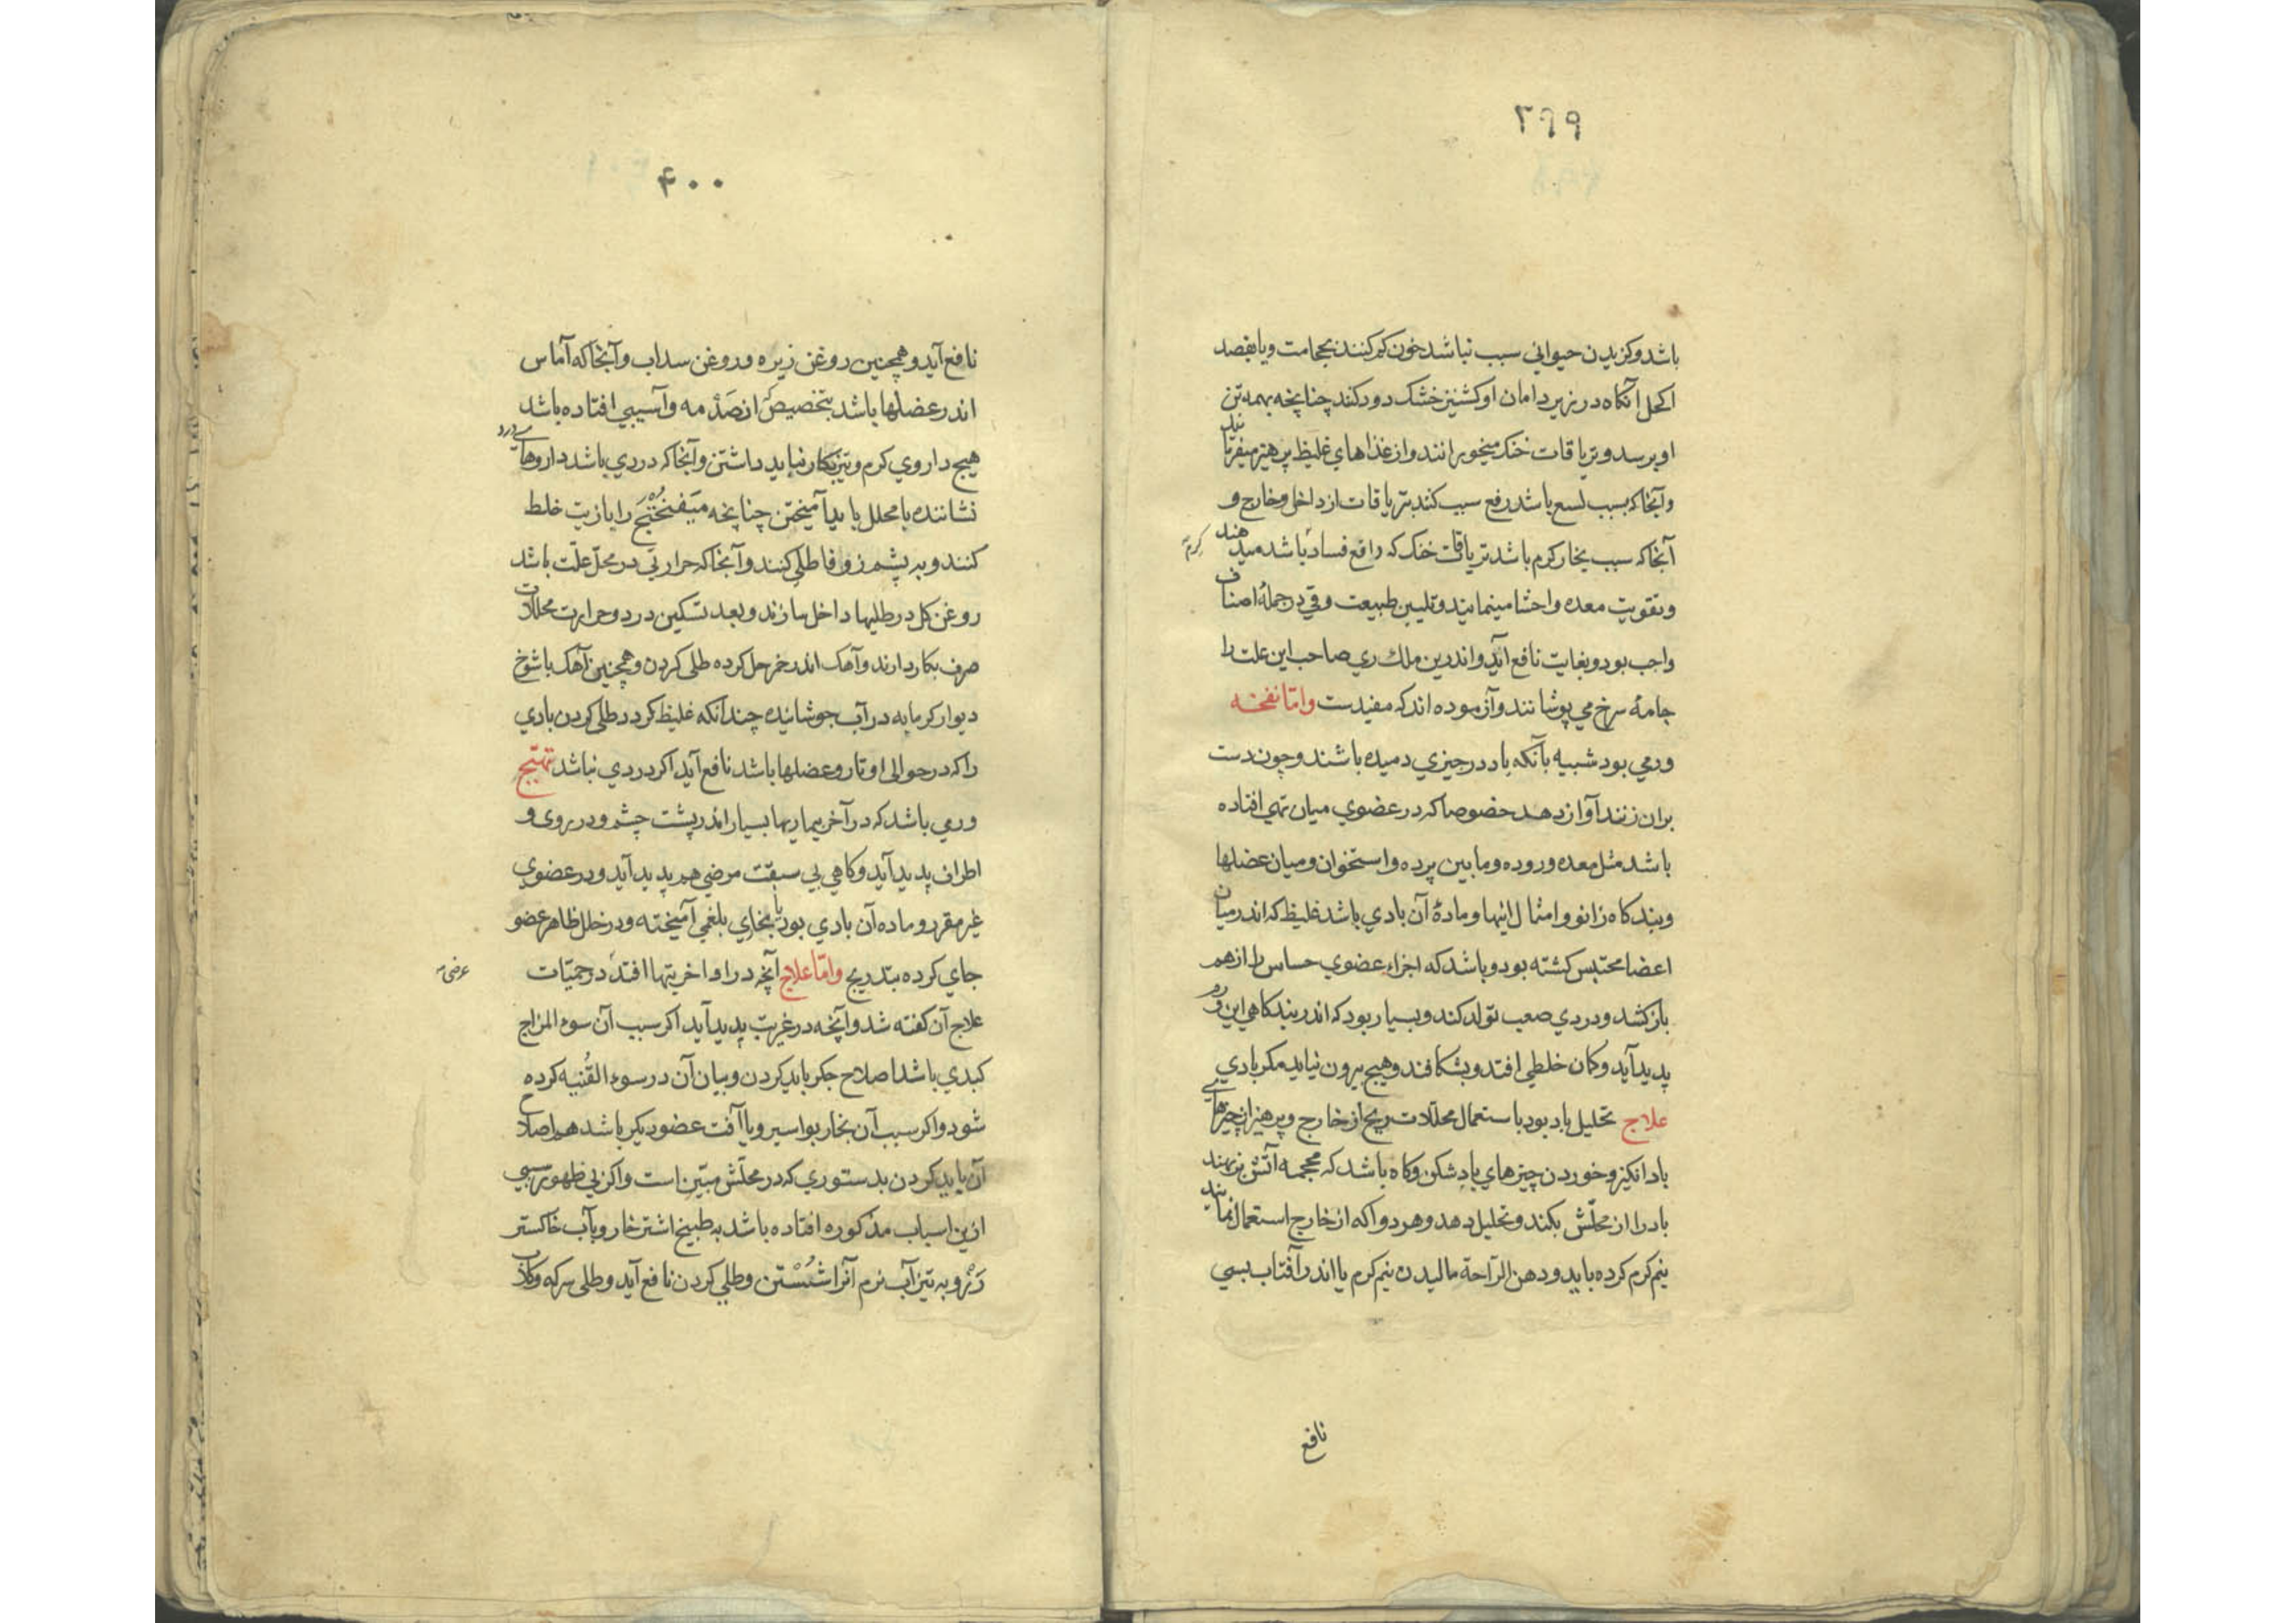 ۳۹۹
باشد و کزیدن حیوانی سبب نباشد خون کم کنند بحجامت و یا بفصد
اکحل آنکاه در زیر دامان او کشنیز خشک دود کنند چنانچه بهمه تن
او برسد و تریاقات خنک میخورانند و از غذاهای غلیظ پرهیز میفرمایند
و آنجا که بسبب لسع باشد رفع سبب کنند بتریاقات از داخل و خارج و
آنجا که سبب بخار کرم باشد تریاقات خنک که دافع فساد باشد میدهند
و تقویت معده و احشا مینمایند و تلیین طبیعت و قی در جملهٔ اصناف
واجب بود و بغایت نافع آید و اندرین ملک ری صاحب این علت را
جامهٔ سرخ می پوشانند و آزموده اند که مفیدست و امّا نفخه
ورمی بود شبیه بآنکه باد در چیزی دمیده باشند و چون دست
بران زنند آواز دهد خصوصا که در عضوی میان تهی افتاده
باشد مثل معده و روده و مابین پرده و استخوان و میان عضلها
و بندکاه زانو و امثال اینها و مادهٔ آن بادی باشد غلیظ که اندر میان
اعضا محتبس کشته بود و باشد که اجزاء عضوی حساس را از هم
بازکشد و دردی صعب تولد کند و بسیار بود که اندر بندکاهی این ورم
پدید آید و کمان خلطی افتد و بشکافند و هیچ بیرون نیاید مکر بادی
علاج تحلیل باد بود باستعمال محللات ریح از خارج و پرهیز از چیزهای
بادانکیز و خوردن چیزهای بادشکن و کاه باشد که محجمه آتش برنهند
باد را از محلّش بکند و تحلیل دهد و هر دوا که از خارج استعمال نمایند
نیم کرم کرده باید و دهن الراحة مالیدن نیم کرم یا اندر آفتاب بسی
نافع
۴۰۰
نافع آید و همچنین روغن زیره و روغن سداب و آنجا که آماس
اندر عضلها باشد بتخصیص از صَدْمه و آسیبی افتاده باشد
هیچ داروی کرم و تیز بکار نباید داشتن و آنجا که دردی باشد داروهای درد
نشاننده با محلل باید آمیختن چنانچه میفنختج را با زیت خلط
کنند و به پشم زوفا طلی کنند و آنجا که حرارتی در محلّ علّت باشد
روغن کل در طلیها داخل سازند و بعد تسکین درد و حرارت محللات
صرف بکار دارند و آهک اندر خمر حل کرده طلی کردن و همچنین آهک با شوخ
دیوار کرمابه در آب جوشانیده چندانکه غلیظ کردد طلی کردن بادی
را که در حوالی اوتار و عضلها باشد نافع آید اکر دردی نباشد تهیّج
ورمی باشد که در آخر بیماریها بسیار اندر پشت چشم و در روی و
اطراف پدید آید و کاهی بی سبقت مرضی هم پدید آید و در عضوی
غیر مقرر و ماده آن بادی بود یا بخاری بلغمی آمیخته و در خلل ظاهر عضو
جای کرده بتدریج و امّا علاج آنچه در اواخر تبها افتد در حمیّات
علاج آن کفته شد و آنچه در غیر تب پدید آید اکر سبب آن سوء المزاج
کبدی باشد اصلاح جکر باید کردن و بیان آن در سوء القُنیه کرده
شود و اکر سبب آن بخار بواسیر و یا آفت عضو دیکر باشد هم اصلاح
آن باید کردن بدستوری که در محلّش مبیّن است و اکر بی ظهور سببی
ازین اسباب مذکوره افتاده باشد به طبیخ اشترخار و بآب خاکستر
رَزْ و به تیزآب نرم آنرا شُسْتن و طلی کردن نافع آید و طلی سرکه و کلاب